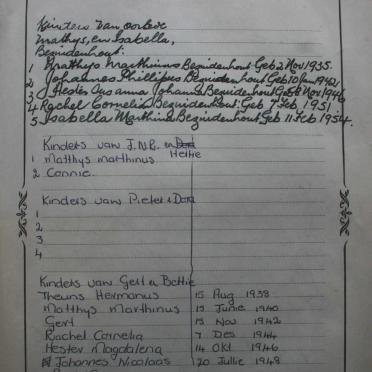 Kinders van oorlede
Mathys, en Isabella,
Bezuidenhout:
1 Matthys Marthinus Bezuidenhout Geb 2 Nov 1935.
2 Johannes Phillipus Bezuidenhout Geb 10 Jan 1942
3 Hester Susanna Johanna Bezuidenhout Geb 5 Nov 1946
4 Rachel Cornelia Bezuidenhout Geb 7 Feb, 1951
5 Isabella Marthina Bezuidenhout Geb 11 Feb 1954.
Kinders van J.N.P. en Hettie
1 Matthys marthinus
2 Connie
Kinders van Pieter & Dora
1
2
3
4
Kinders van Gert en Bettie
Theuns Hermanus 15 Aug 1938
Matthys Marthinus 15 Junie 1940
Gert 15 Nov 1942
Rachel Cornelia 7 Des 1944
Hester Magdalena 14 Okt 1946
Johannes Nicolaas 20 Jullie 1948